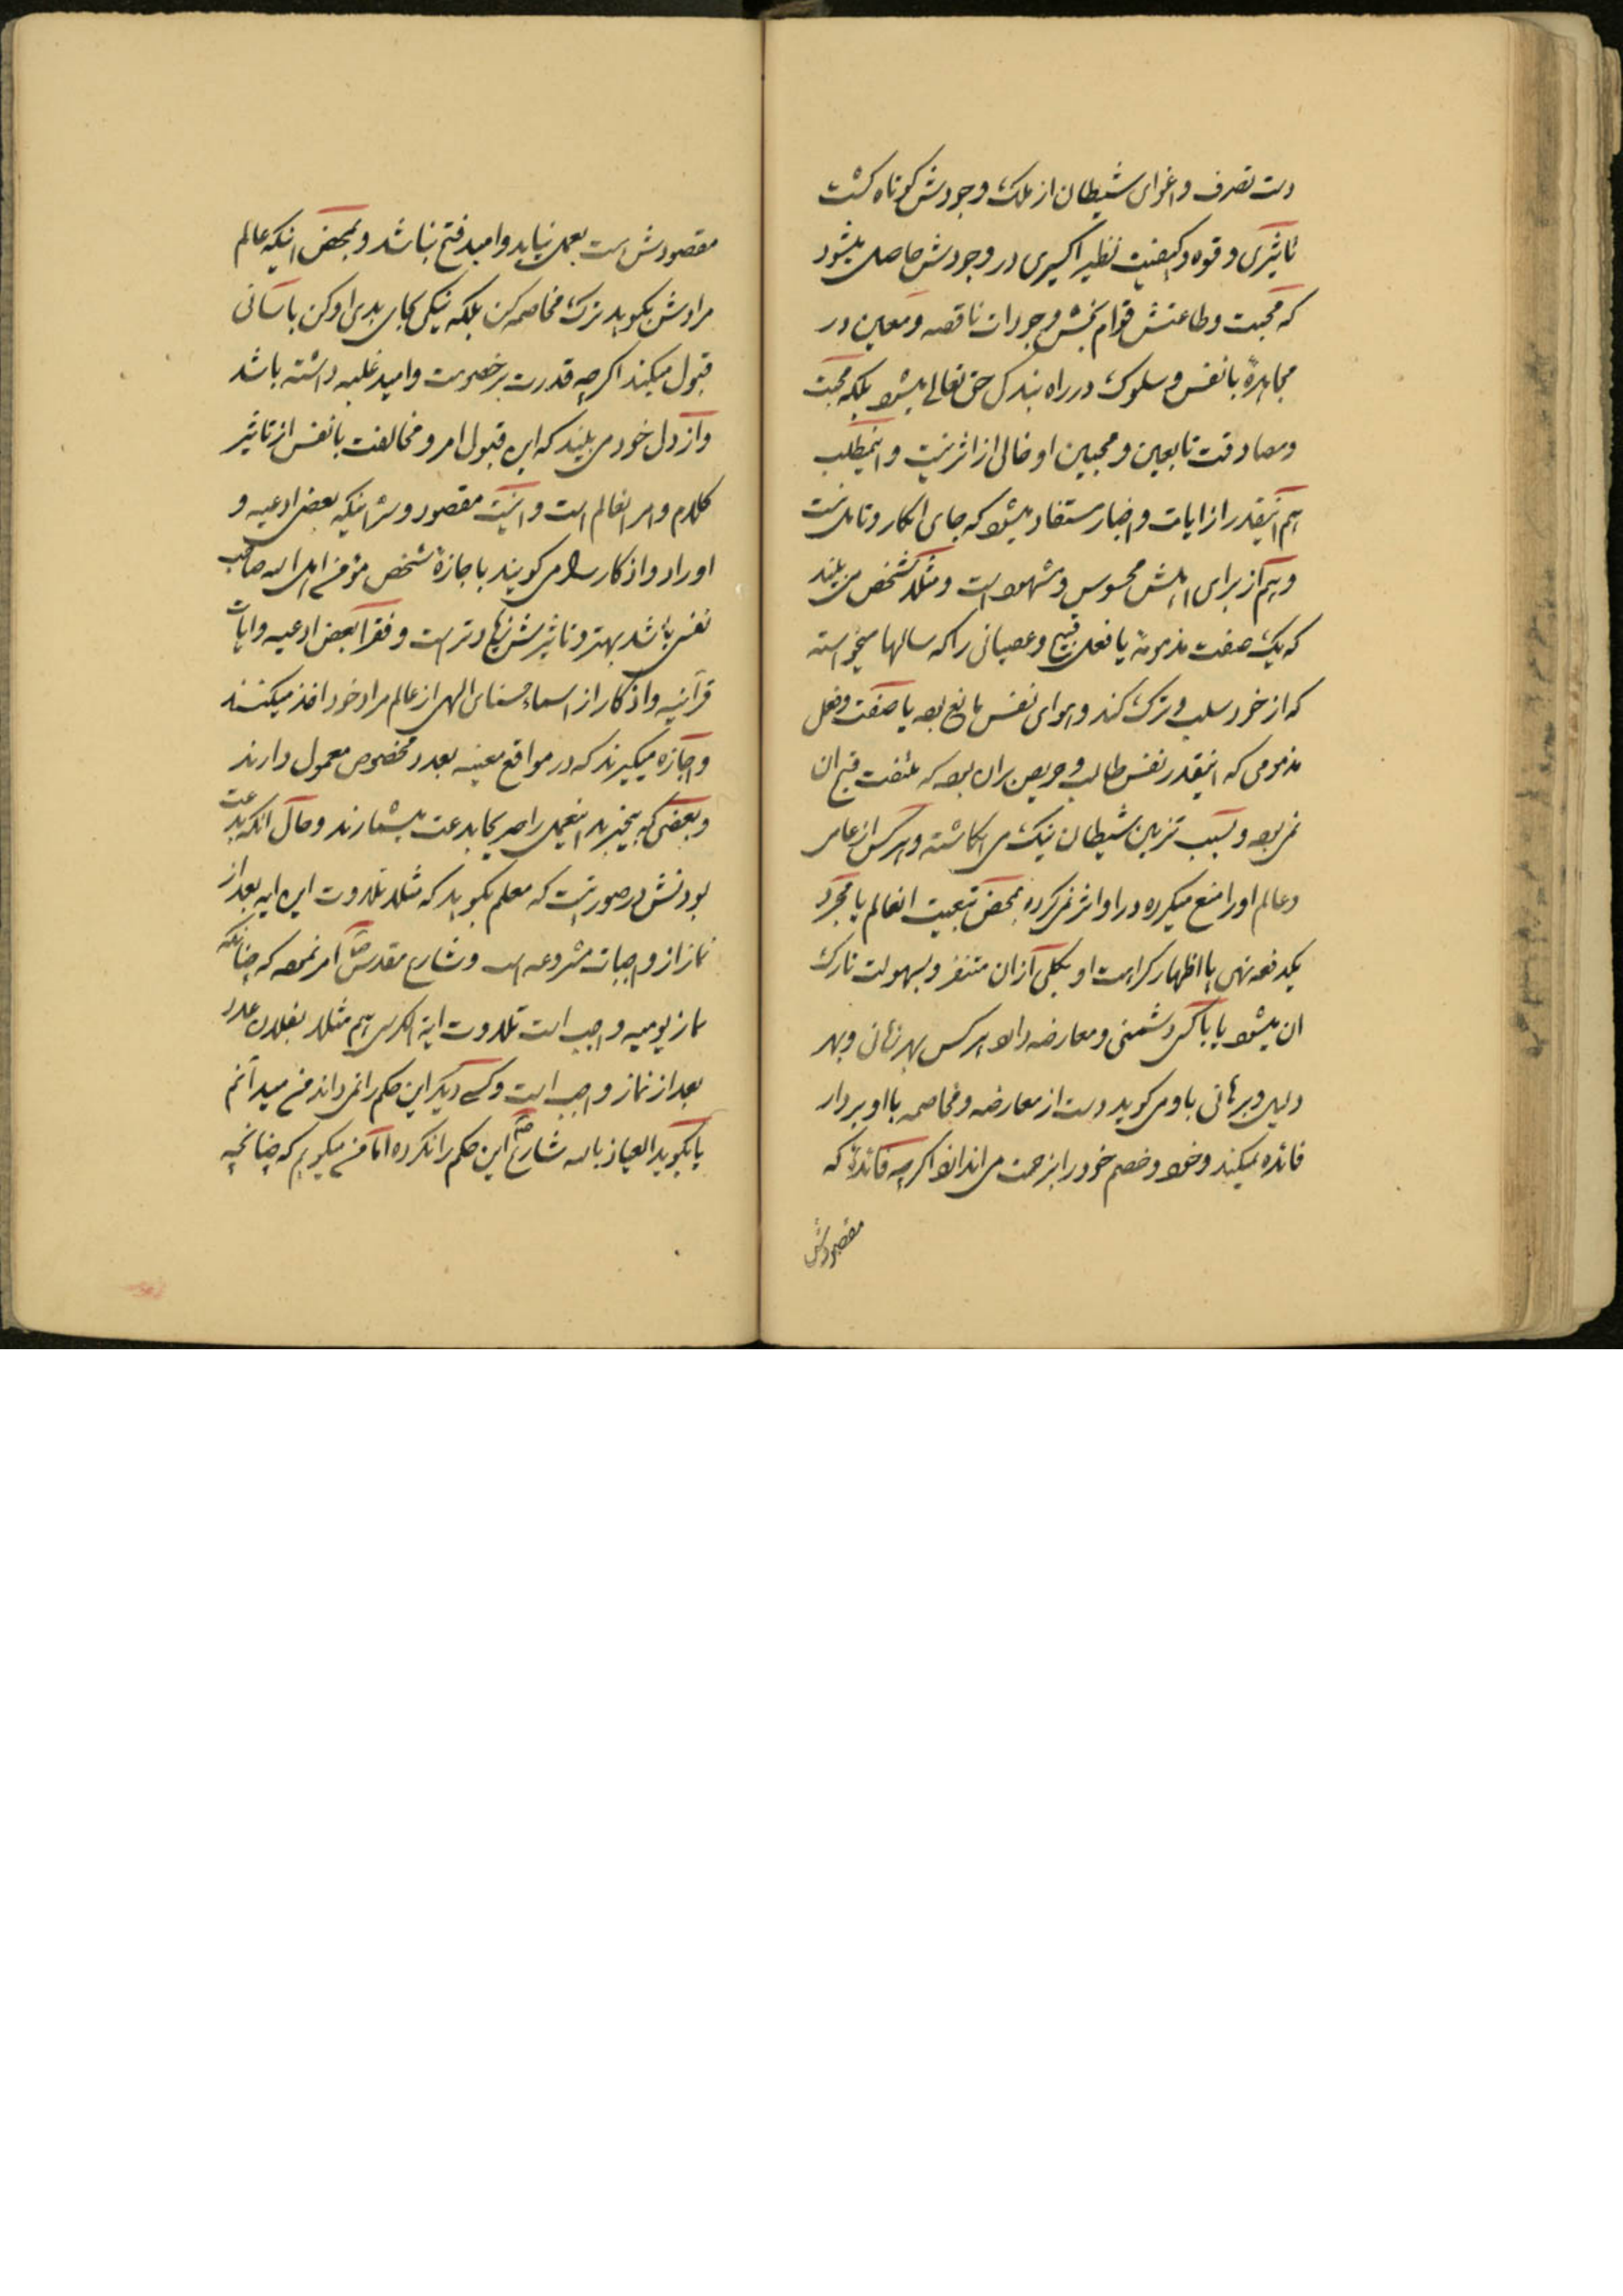 دست تصرف و اغوای شیطان از ملک وجودش کوتاه گشت
تاثیری و قوه و کیفیت نظیر اکسیری در وجودش حاصل میشود
که محبت و طاعتش قوام بخش وجودات ناقصه و معین در
مجاهدهٔ با نفس و سلوک در راه بندگی حق تعالی میشود بلکه محبت
و مصادقت تابعین و محبین او خالی از اثر نیست و اینمطلب
هم اینقدر از ایات و اخبار مستفاد میشود که جای انکار و تامل نیست
و هم از برای اهلش محسوس و مشهود است و مثلا شخص می بیند
که یک صفت مذمومهٔ یا فعل قبیح و عصیانی را که سالها میخواسته
که از خود سلب و ترک کند و هوای نفس مانع بوده یا صفت و فعل
مذمومی که اینقدر نفس طالب و حریص بران بوده که ملتفت قبح ان
نمی بوده و بسبب تزیین شیطان نیک می انگاشته و هر کس از عامی
و عالم او را منع میکرده در او اثر نمی کرده بمحض تبعیت انعالم یا بمجرد
یکدفعه نهی یا اظهار کراهت او بکلی از ان متنفر و بسهولت تارک
ان میشود یا با کسی دشمنی و معارضه دارد هر کس بهر زبان و بهر
دلیل و برهانی باو می گوید دست از معارضه و مخاصمه با او بردار
فائده نمیکند و خود و خصم خود را بزحمت می اندازد اگر چه فائدهٔ که
مقصودش
مقصودش است بعمل نیاید و امید فتح نباشد و بمحض اینکه عالم
مرادش بگوید ترک مخاصمه کن بلکه نیکی بجای بدی او کن باسانی
قبول میکند اگر چه قدرت بر خصومت و امید غلبه داشته باشد
و از دل خود می بیند که این قبول امر و مخالفت با نفس از تاثیر
کلام و امر انعالم است و اینست مقصود و سر اینکه بعضی ادعیه و
اوراد و اذکار را می گویند با جازهٔ شخص مؤمن اهل الله صاحب
نفس باشد بهتر و تاثیرش زیادتر است و فقرا بعض ادعیه و ایات
قرآنیه و اذکار از اسماء حسنای الهی از عالم مراد خود اخذ میکنند
و اجازه میگیرند که در مواقع معینه بعدد مخصوص معمول دارند
و بعضی که بیخبرند اینعمل را صریحا بدعت میشمارند و حال انکه بدعت
بودنش در صورتیست که معلم بگوید که مثلا تلاوت این ایه بعد از
نماز از واجبات مشروعه است و شارع مقدس ص امر نموده که چنانکه
نماز یومیه واجب است تلاوت ایة الکرسی هم مثلا بفلان عدد
بعد از نماز واجب است و کسی دیگر این حکم را نمی داند من میدانم
یا بگوید العیاذ بالله شارع ص این حکم را نکرده اما من میگویم که چنانچه